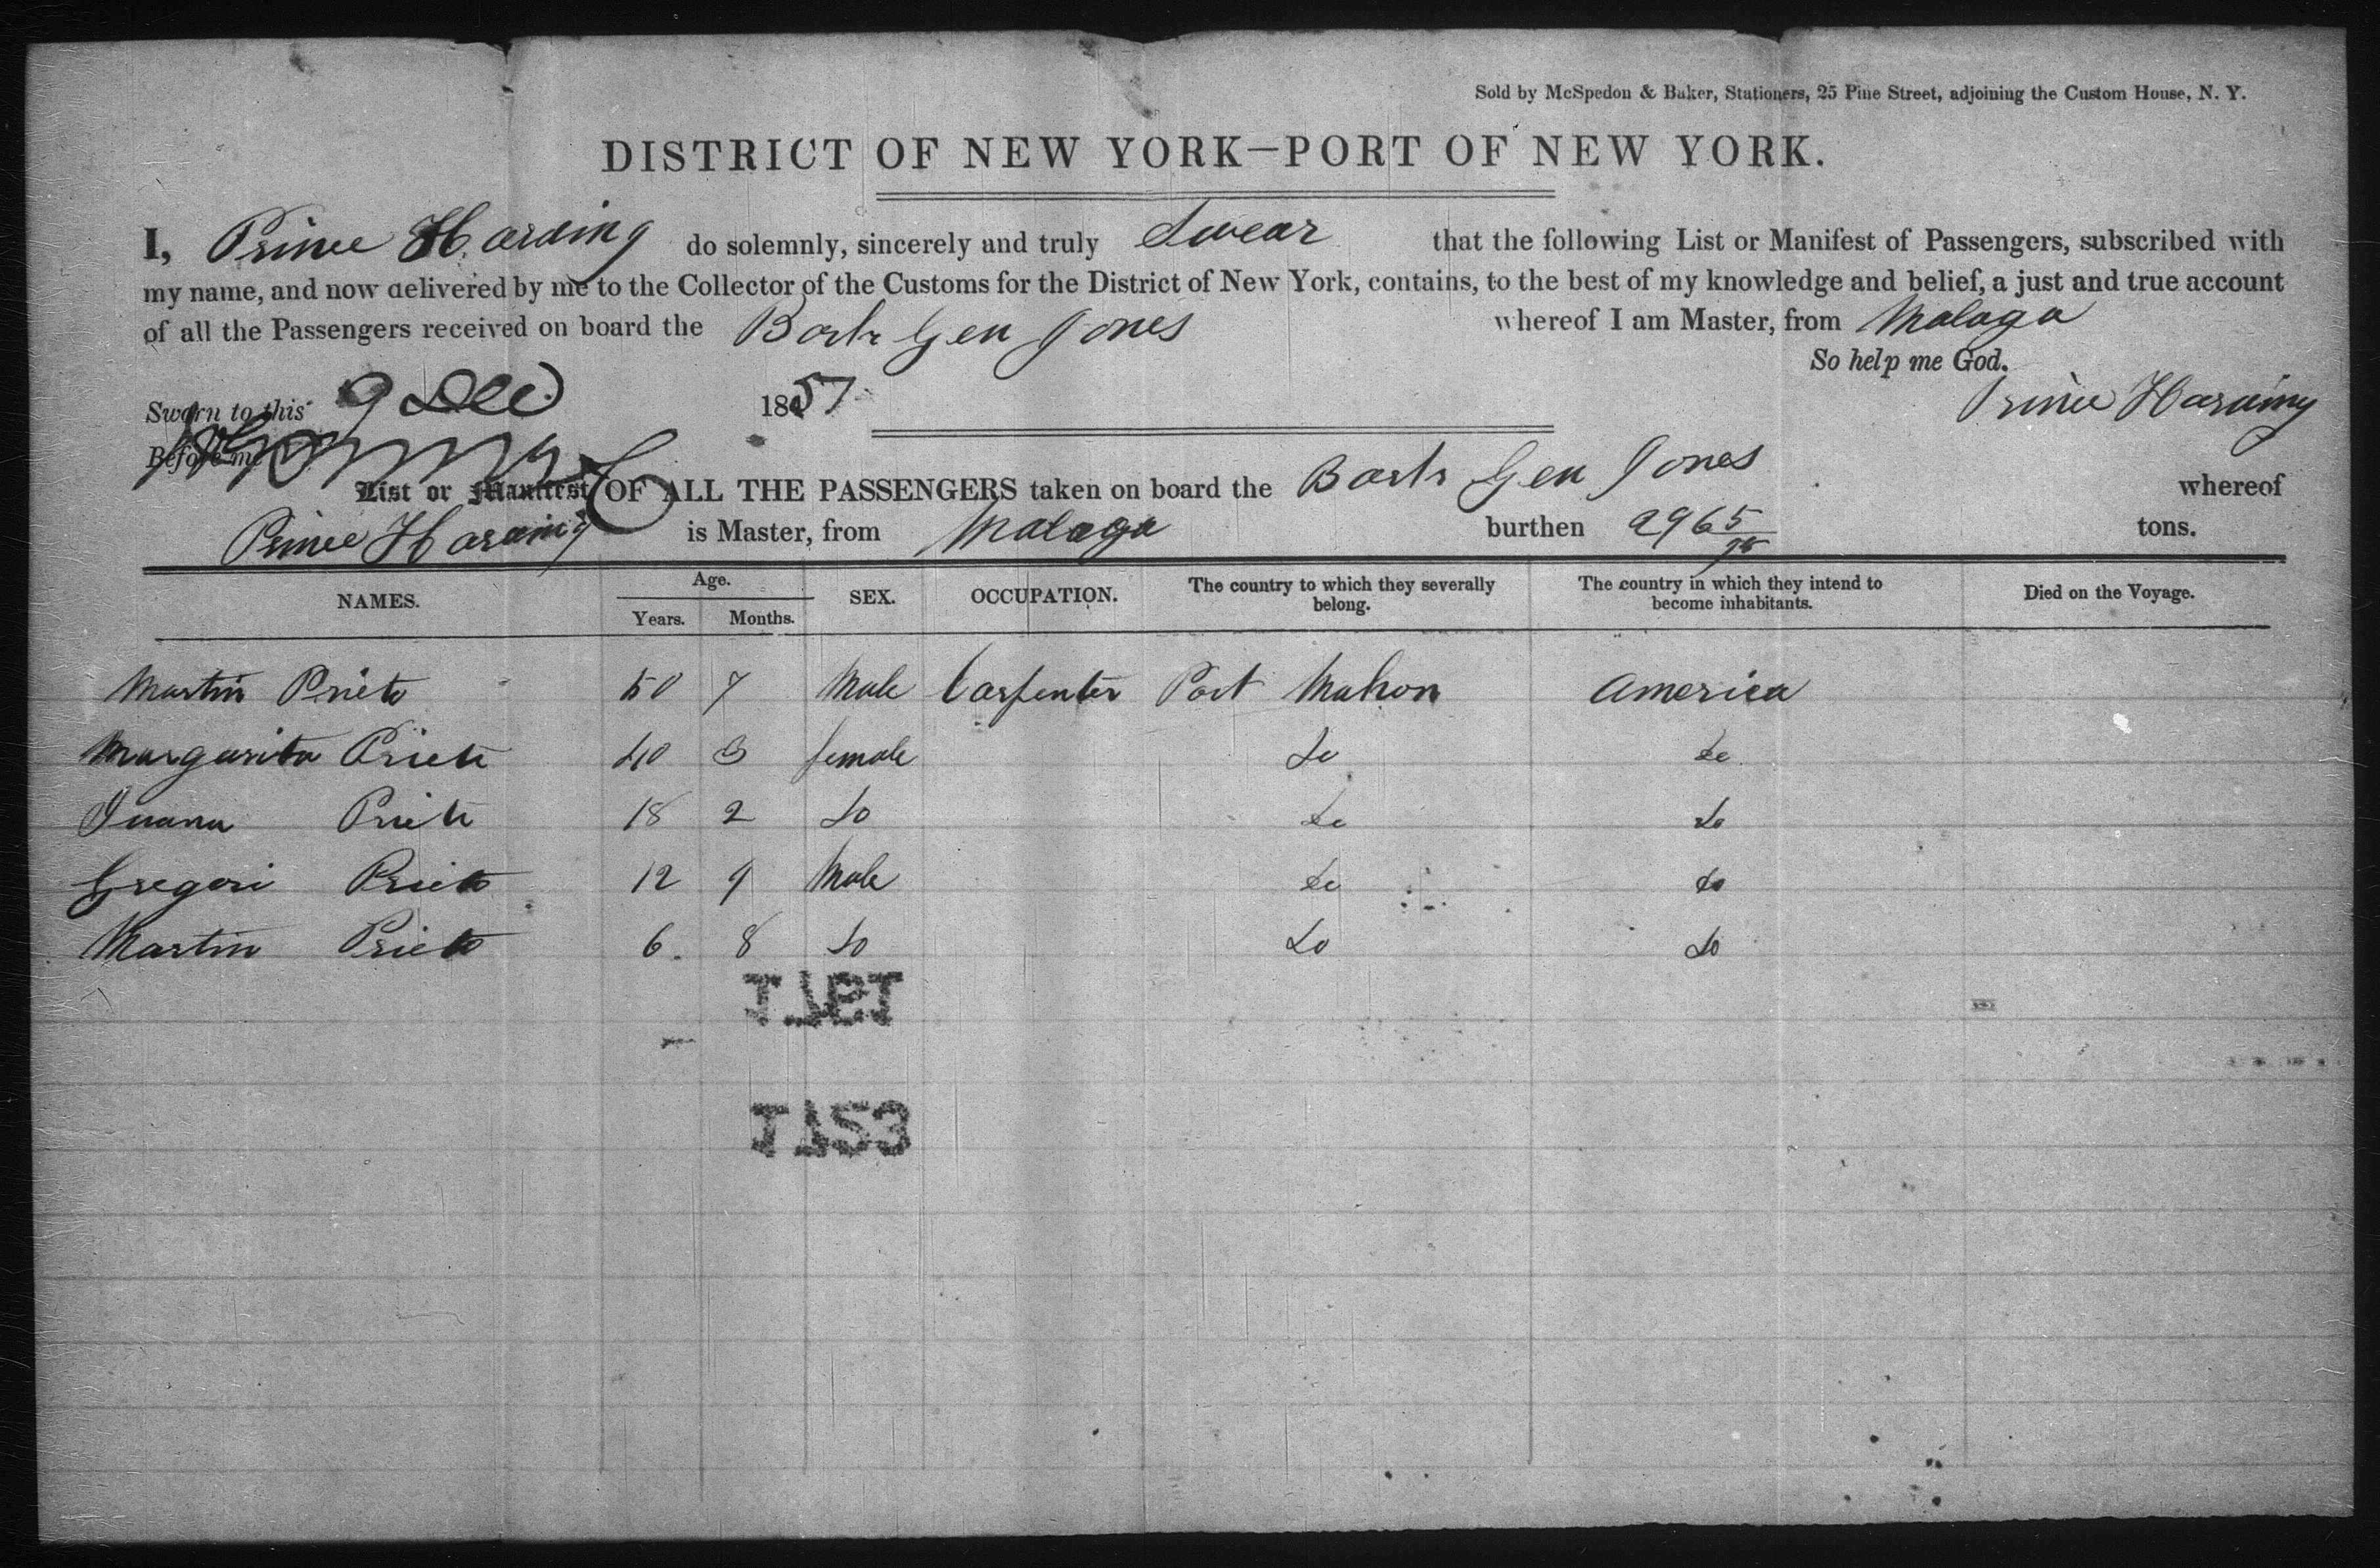 Sold by McSpedon & Baker, Stationers, 25 Pine Street, adjoining the Custom House, N. Y.
DISTRICT OF NEW YORK—PORT OF NEW YORK.
I, Prince Harding do solemnly, sincerely and truly Swear that the following List or Manifest of Passengers, subscribed with
my name, and now delivered by me to the Collector of the Customs for the District of New York, contains, to the best of my knowledge and belief, a just and true account
of all the Passengers received on board the Bark Gen Jones whereof I am Master, from Malaga
So help me God.
Sworn to this 9 Dec 1857 Prince Harding
Before me
List or Manifest OF ALL THE PASSENGERS taken on board the Bark Gen Jones whereof
Prince Harding is Master, from Malaga burthen 296 5/95 tons.
NAMES. Age. Years. Months. SEX. OCCUPATION. The country to which they severally belong. The country in which they intend to become inhabitants. Died on the Voyage.
Martin Prieto 50 7 Male Carpenter Port Mahon America
Margarita Prieto 40 3 female Do Do
Juana Prieto 18 2 Do Do Do
Gregori Prieto 12 9 Male Do Do
Martin Prieto 6 8 Do Do Do